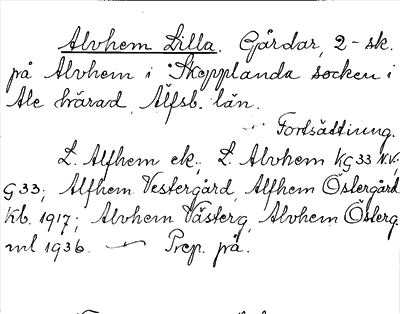 Alvhem Lilla. Gårdar, 2-sk.
på Alvhem i Skepplanda socken i
Ale härad, Älfsb. län.
Fortsättning.
L. Alfhem ek.; L. Alvhem KG33 N.V.;
G33; Alfhem Vestergård, Alfhem Östergård
Kb. 1917; Alvhem Västerg, Alvhem Österg.
ml 1936. — Prep. på.